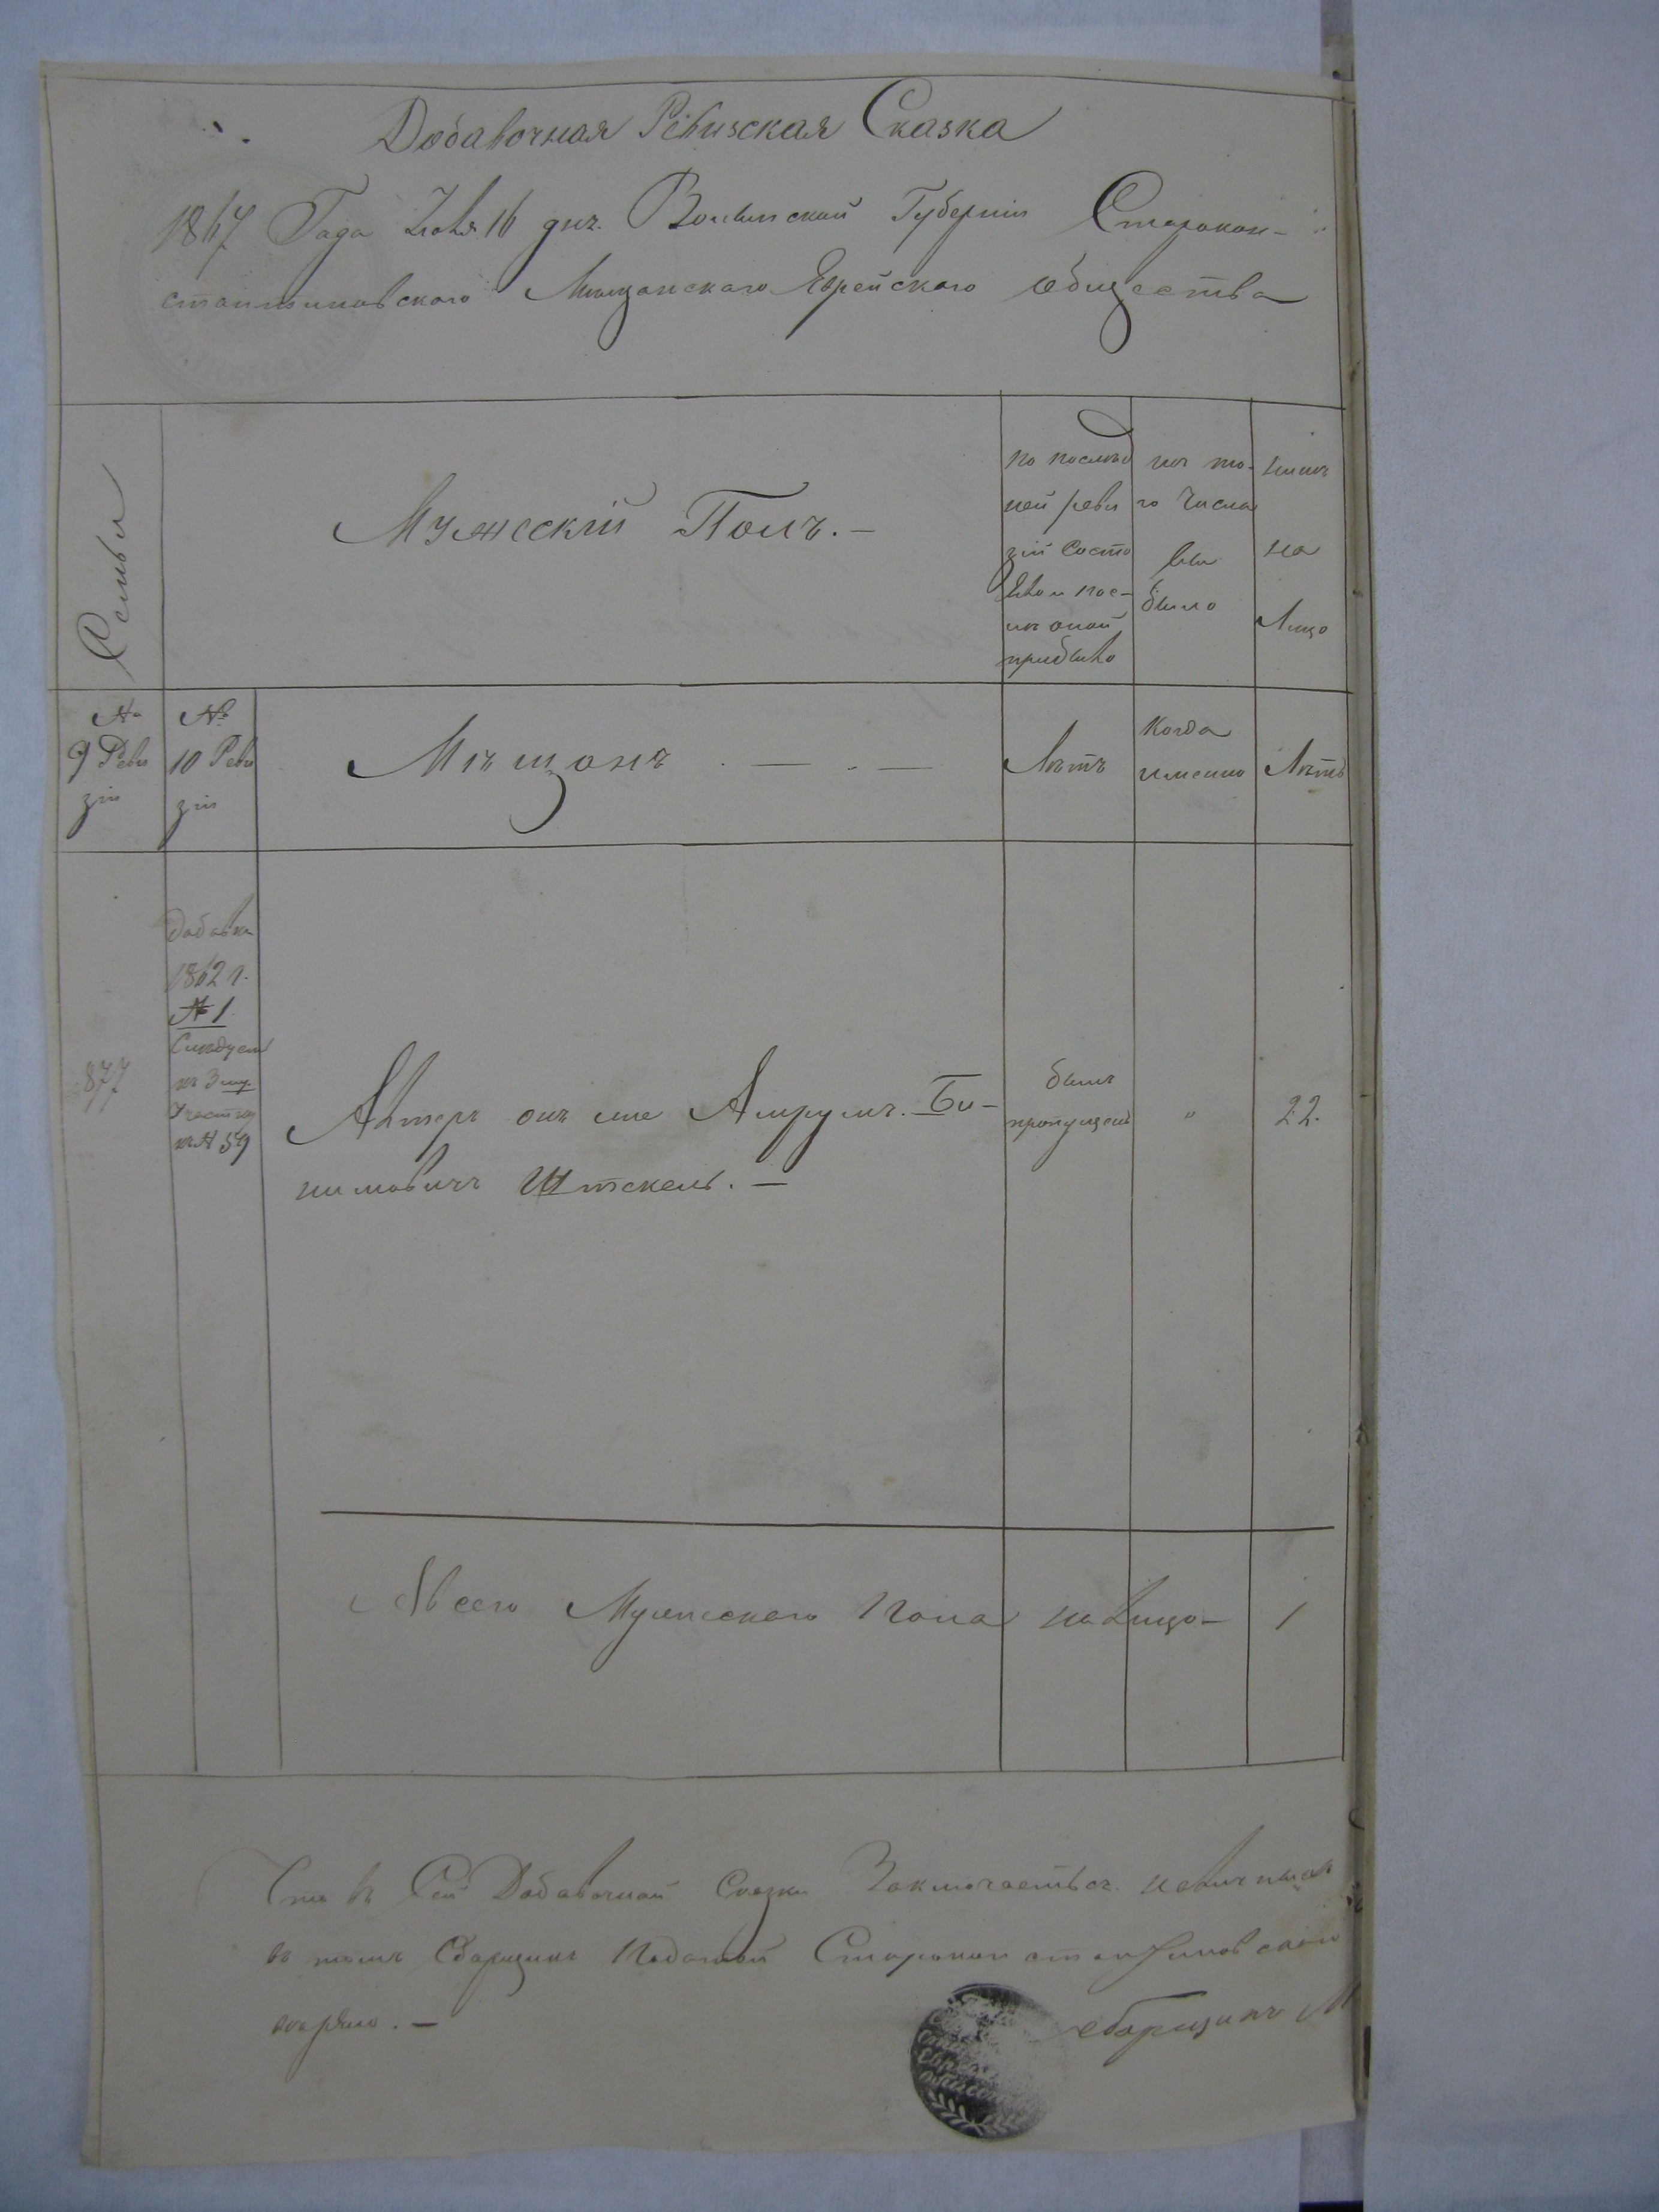 Добавочная Ревизская Сказка
1867 Года Июля 16 дня. Волынской Губерніи Старокон-
стантиновского Мѣщанского Еврейского общества
Семьи
Мужескій Полъ. —
по послѣд
ней реви
зіи Состо
яло и пос-
лѣ оной
прибыло
изъ то-
го числа
вы
было
нынѣ
на
Лицо
№
9 Реви
зіи
№
10 Реви
зіи
Мѣщанъ . — . —
Лѣтъ
Когда
именно
Лѣтъ
877
Добавка
1862 г.
№ 1
Слѣдуетъ
къ 3му
Участку
к № 59
Автеръ онъ же Амрумъ. Би-
нимовичъ Штекель. —
былъ
пропущенъ
"
22.
Всего Мужеского Пола на Лицо — 1
Что въ Сей Добавочной Сказки Заключаеться
въ томъ Сборщикъ Податей Старокон стантиновского
сборщикъ М